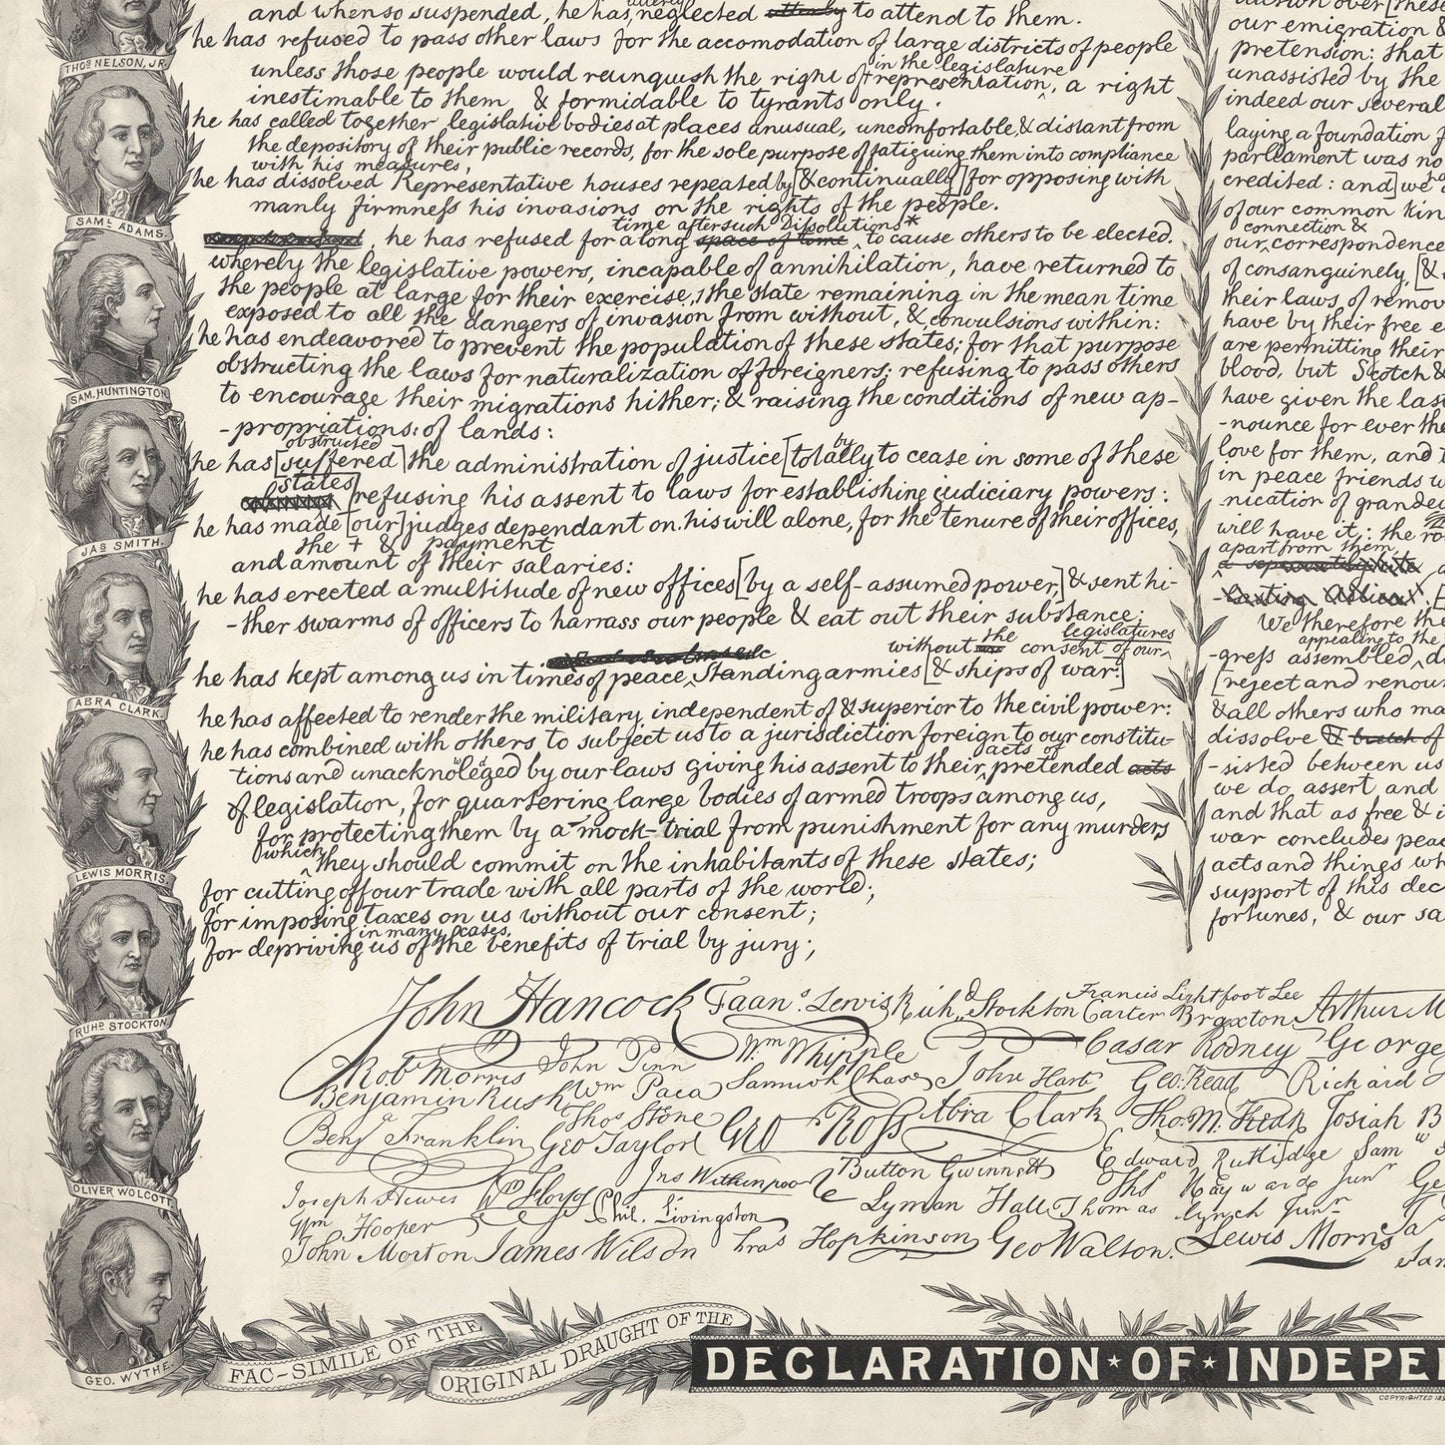 THOS NELSON, JR.
SAML ADAMS.
SAM. HUNTINGTON
JAS SMITH.
ABRA CLARK.
LEWIS MORRIS
RUHD STOCKTON
OLIVER WOLCOTT
GEO. WYTHE.
and when so suspended, he has neglected utterly to attend to them.
he has refused to pass other laws for the accomodation of large districts of people
in the legislature
unless those people would relinquish the right of representation, a right
inestimable to them & formidable to tyrants only.
he has called together legislative bodies at places unusual, uncomfortable, & distant from
the depository of their public records, for the sole purpose of fatiguing them into compliance
with his measures,
he has dissolved Representative houses repeatedly [& continually] for opposing with
manly firmness his invasions on the rights of the people.
time after such Dissolutions*
, he has refused for a long space of time to cause others to be elected.
whereby the legislative powers, incapable of annihilation, have returned to
the people at large for their exercise, the state remaining in the mean time
exposed to all the dangers of invasion from without, & convulsions within:
he has endeavored to prevent the population of these states; for that purpose
obstructing the laws for naturalization of foreigners: refusing to pass others
to encourage their migrations hither; & raising the conditions of new ap-
-propriations: of lands:
obstructed by
he has [suffered] the administration of justice [totally to cease in some of these
states]
refusing his assent to laws for establishing judiciary powers:
he has made [our] judges dependant on his will alone, for the tenure of their offices,
the + & payment
and amount of their salaries:
he has erected a multitude of new offices [by a self-assumed power,] & sent hi-
-ther swarms of officers to harrass our people & eat out their substance:
without the consent of our legislatures
he has kept among us in times of peace, Standing armies [& ships of war:]
he has affected to render the military, independent of & superior to the civil power:
he has combined with others to subject us to a jurisdiction foreign to our constitu-
acts of
tions and unacknoleged by our laws giving his assent to their pretended acts
of legislation, for quartering large bodies of armed troops among us,
for protecting them by a mock-trial from punishment for any murders
which
they should commit on the inhabitants of these states;
for cutting off our trade with all parts of the world;
for imposing taxes on us without our consent;
in many cases
for depriving us of the benefits of trial by jury;
our emigration &
pretension: that
unassisted by the
indeed our several
laying a foundation f
parliament was no
credited: and] we
of our common kin
connection &
our correspondence
of consanguinely, [&
their laws, of remov
have by their free e
are permitting their
blood, but Scotch &
have given the las
-nounce for ever the
love for them, and t
in peace friends w
-nication of grandeu
will have it: the ro
apart from them,
We therefore the
appealing to the
-gress assembled, d
[reject and renou
& all others who ma
dissolve & of
-sisted between us
we do assert and
and that as free & i
war conclude peac
acts and things wh
support of this dec
fortunes, & our sa
John Hancock Faans Lewis Richd Stockton Francis Lightfoot Lee Carter Braxton Arthur M
Robt Morris John Penn Wm Whipple Casar Rodney George
Benjamin Rush Wm Paca Samuel Chase John Hart Geo: Read Richard
Benja Franklin Thos Stone Geo Taylor Geo Ross Abra Clark Tho. M. Kean Josiah B
Joseph Hewes Wm Floyd Jno Witherspoon Button Gwinnett Edward Rutlidge Saml
Wm Hooper Phil. Livingston Lyman Hall Thos Hayward Junr Thomas lynch Junr. Ge
John Morton James Wilson Fras Hopkinson Geo Walton. Lewis Morris
FAC-SIMILE OF THE
ORIGINAL DRAUGHT OF THE
DECLARATION ★ OF ★ INDEPE
COPYRIGHTED